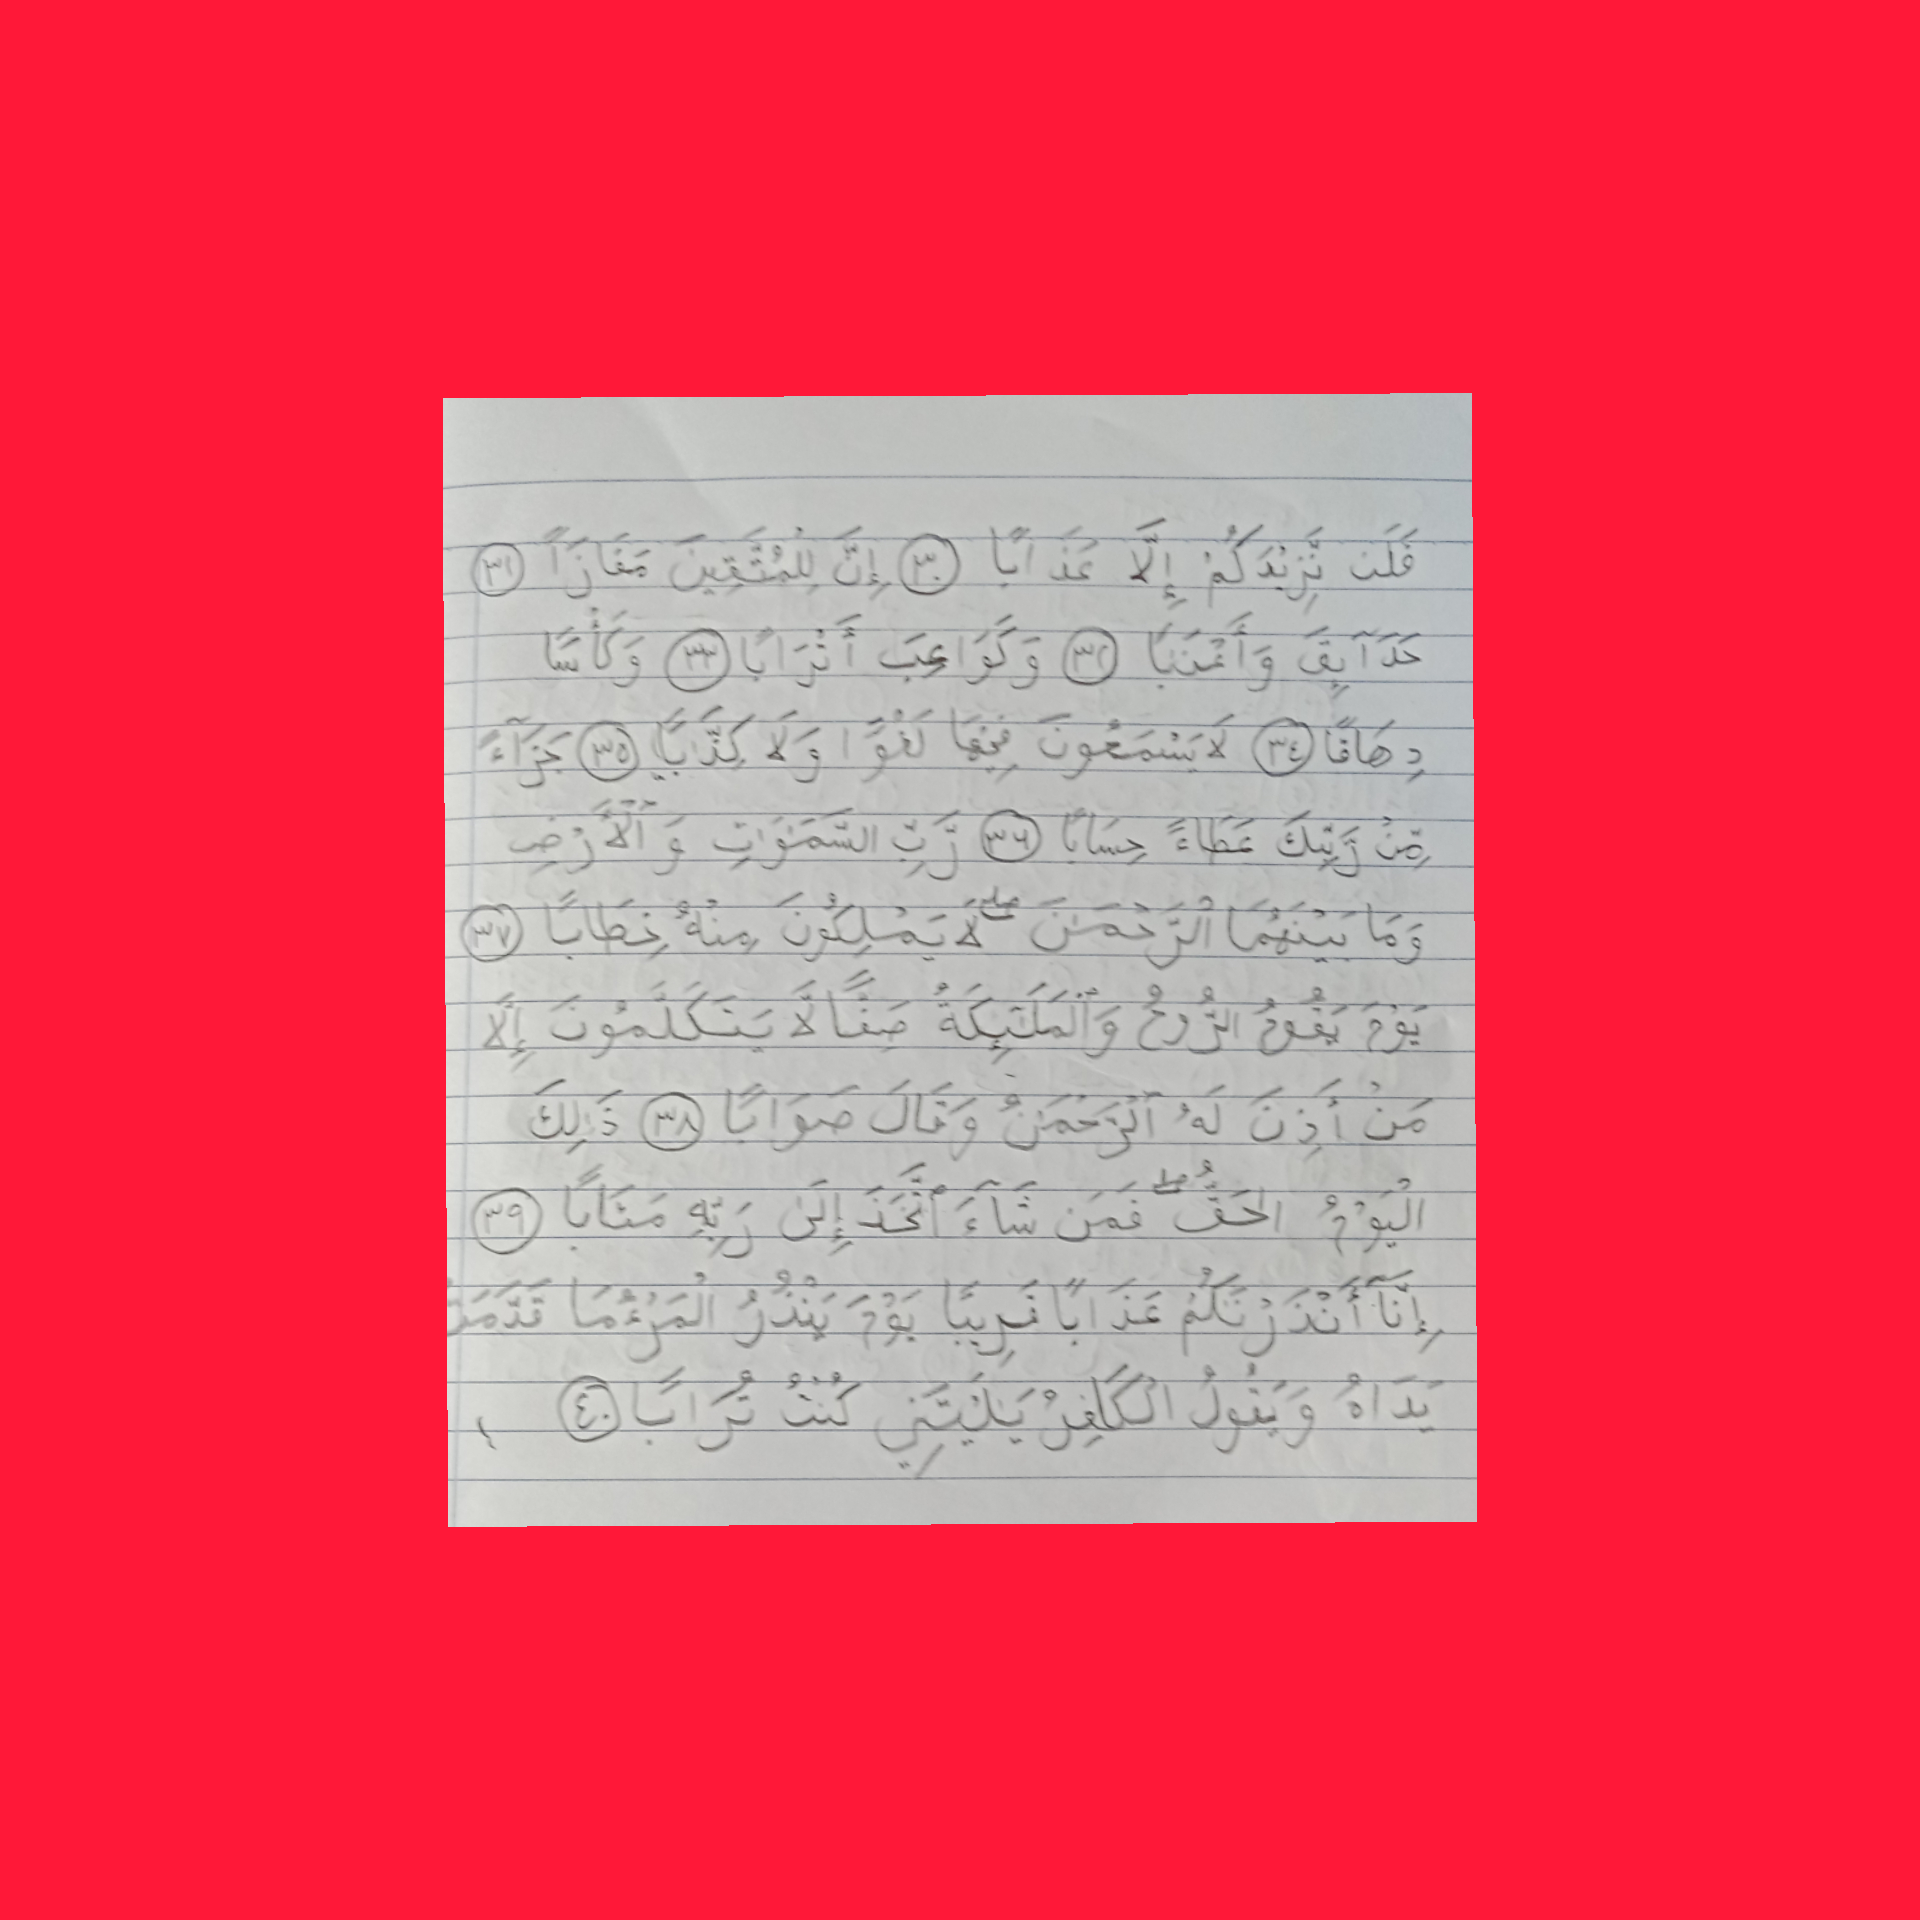 فَلَن نَّزِيْدَكُمْ إِلَّا عَذَابًا ٣٠ إِنَّ لِلْمُتَّقِينَ مَفَازًا ٣١
حَدَآئِقَ وَأَعْنَٰبًا ٣٢ وَكَوَاعِبَ أَتْرَابًا ٣٣ وَكَأْسًا
دِهَاقًا ٣٤ لَا يَسْمَعُونَ فِيْهَا لَغْوًا وَلَا كِذَّٰبًا ٣٥ جَزَآءً
مِّنْ رَّبِّكَ عَطَاءً حِسَابًا ٣٦ رَّبِّ السَّمَٰوَٰتِ وَٱلْأَرْضِ
وَمَا بَيْنَهُمَا الرَّحْمَٰنِ ۖ لَا يَمْلِكُونَ مِنْهُ خِطَابًا ٣٧
يَوْمَ يَقُومُ الرُّوحُ وَٱلْمَلَٰٓئِكَةُ صَفًّا لَّا يَتَكَلَّمُونَ إِلَّا
مَنْ أَذِنَ لَهُ ٱلرَّحْمَٰنُ وَقَالَ صَوَابًا ٣٨ ذَٰلِكَ
الْيَوْمُ الْحَقُّ ۖ فَمَن شَآءَ ٱتَّخَذَ إِلَىٰ رَبِّهِ مَـَٔابًا ٣٩
إِنَّآ أَنْذَرْنَٰكُمْ عَذَابًا قَرِيبًا يَوْمَ يَنْظُرُ الْمَرْءُ مَا قَدَّمَتْ
يَدَاهُ وَيَقُولُ الْكَافِرُ يَٰلَيْتَنِي كُنْتُ تُرَابًا ٤٠